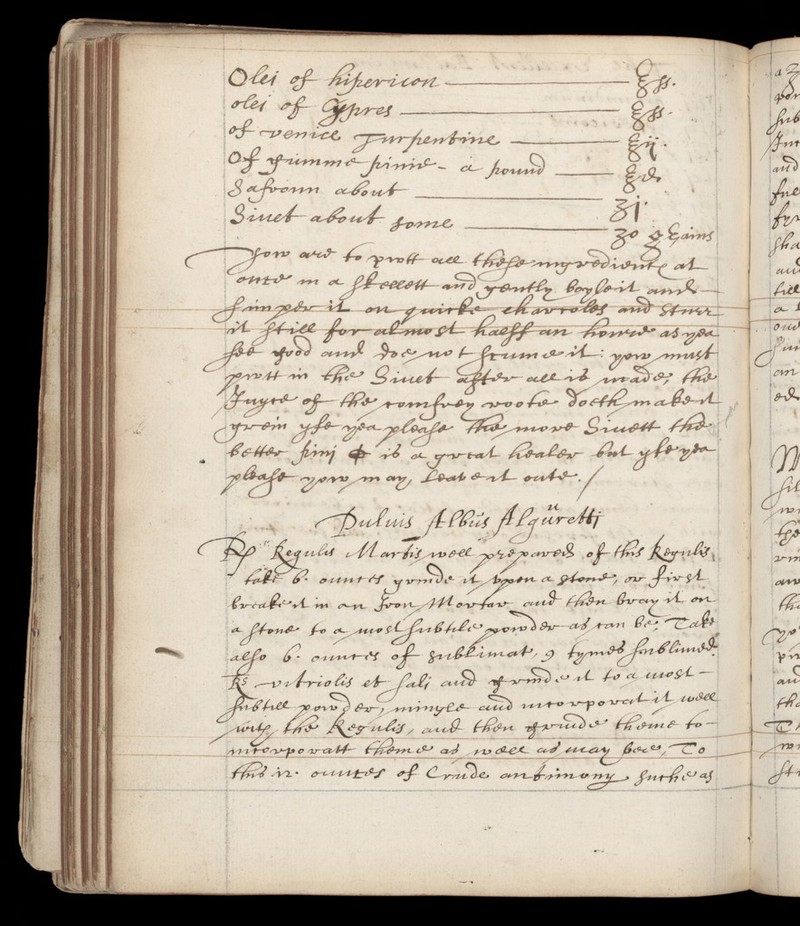 Olei of hipericon ℥ss.
olei of Cypres ℥ss.
of venice Turpentine ℥ij.
Of gumme pinie - a pound
Safronn about ʒj.
Sivet about some 30 grains
yow are to putt all these ingredients at
once in a skellett and gently boyle it and
simper it on quicke charcoles and sturr
it still for almost halff an howre as yea
see good and doe not scume it : yow must
putt in the Sivet after all is made, the
Juyce of the comfrey roote doeth make it
grein yfe yea please the more Sivett the
better pinj is a great healer but yfe yea
please yow may leave it oute . /
Pulvis Albus Algüretti
Rp Regulis Martis well prepared of this Regulis
take 6. ounces grinde it vpon a stone, or first
breake it in an Iron Mortar and then bray it on
a stone to a most subtile powder as can be, Take
also 6. ounces of sublimat, 9 tymes sublimed.
vitriolis et sali and grinde it to a most -
subtill powder, mingle and incorporat it well
with the Regulis, and then grinde theme to -
incorporatt theme as well as may bee, To
this 12. ounces of Crude antimony suche as